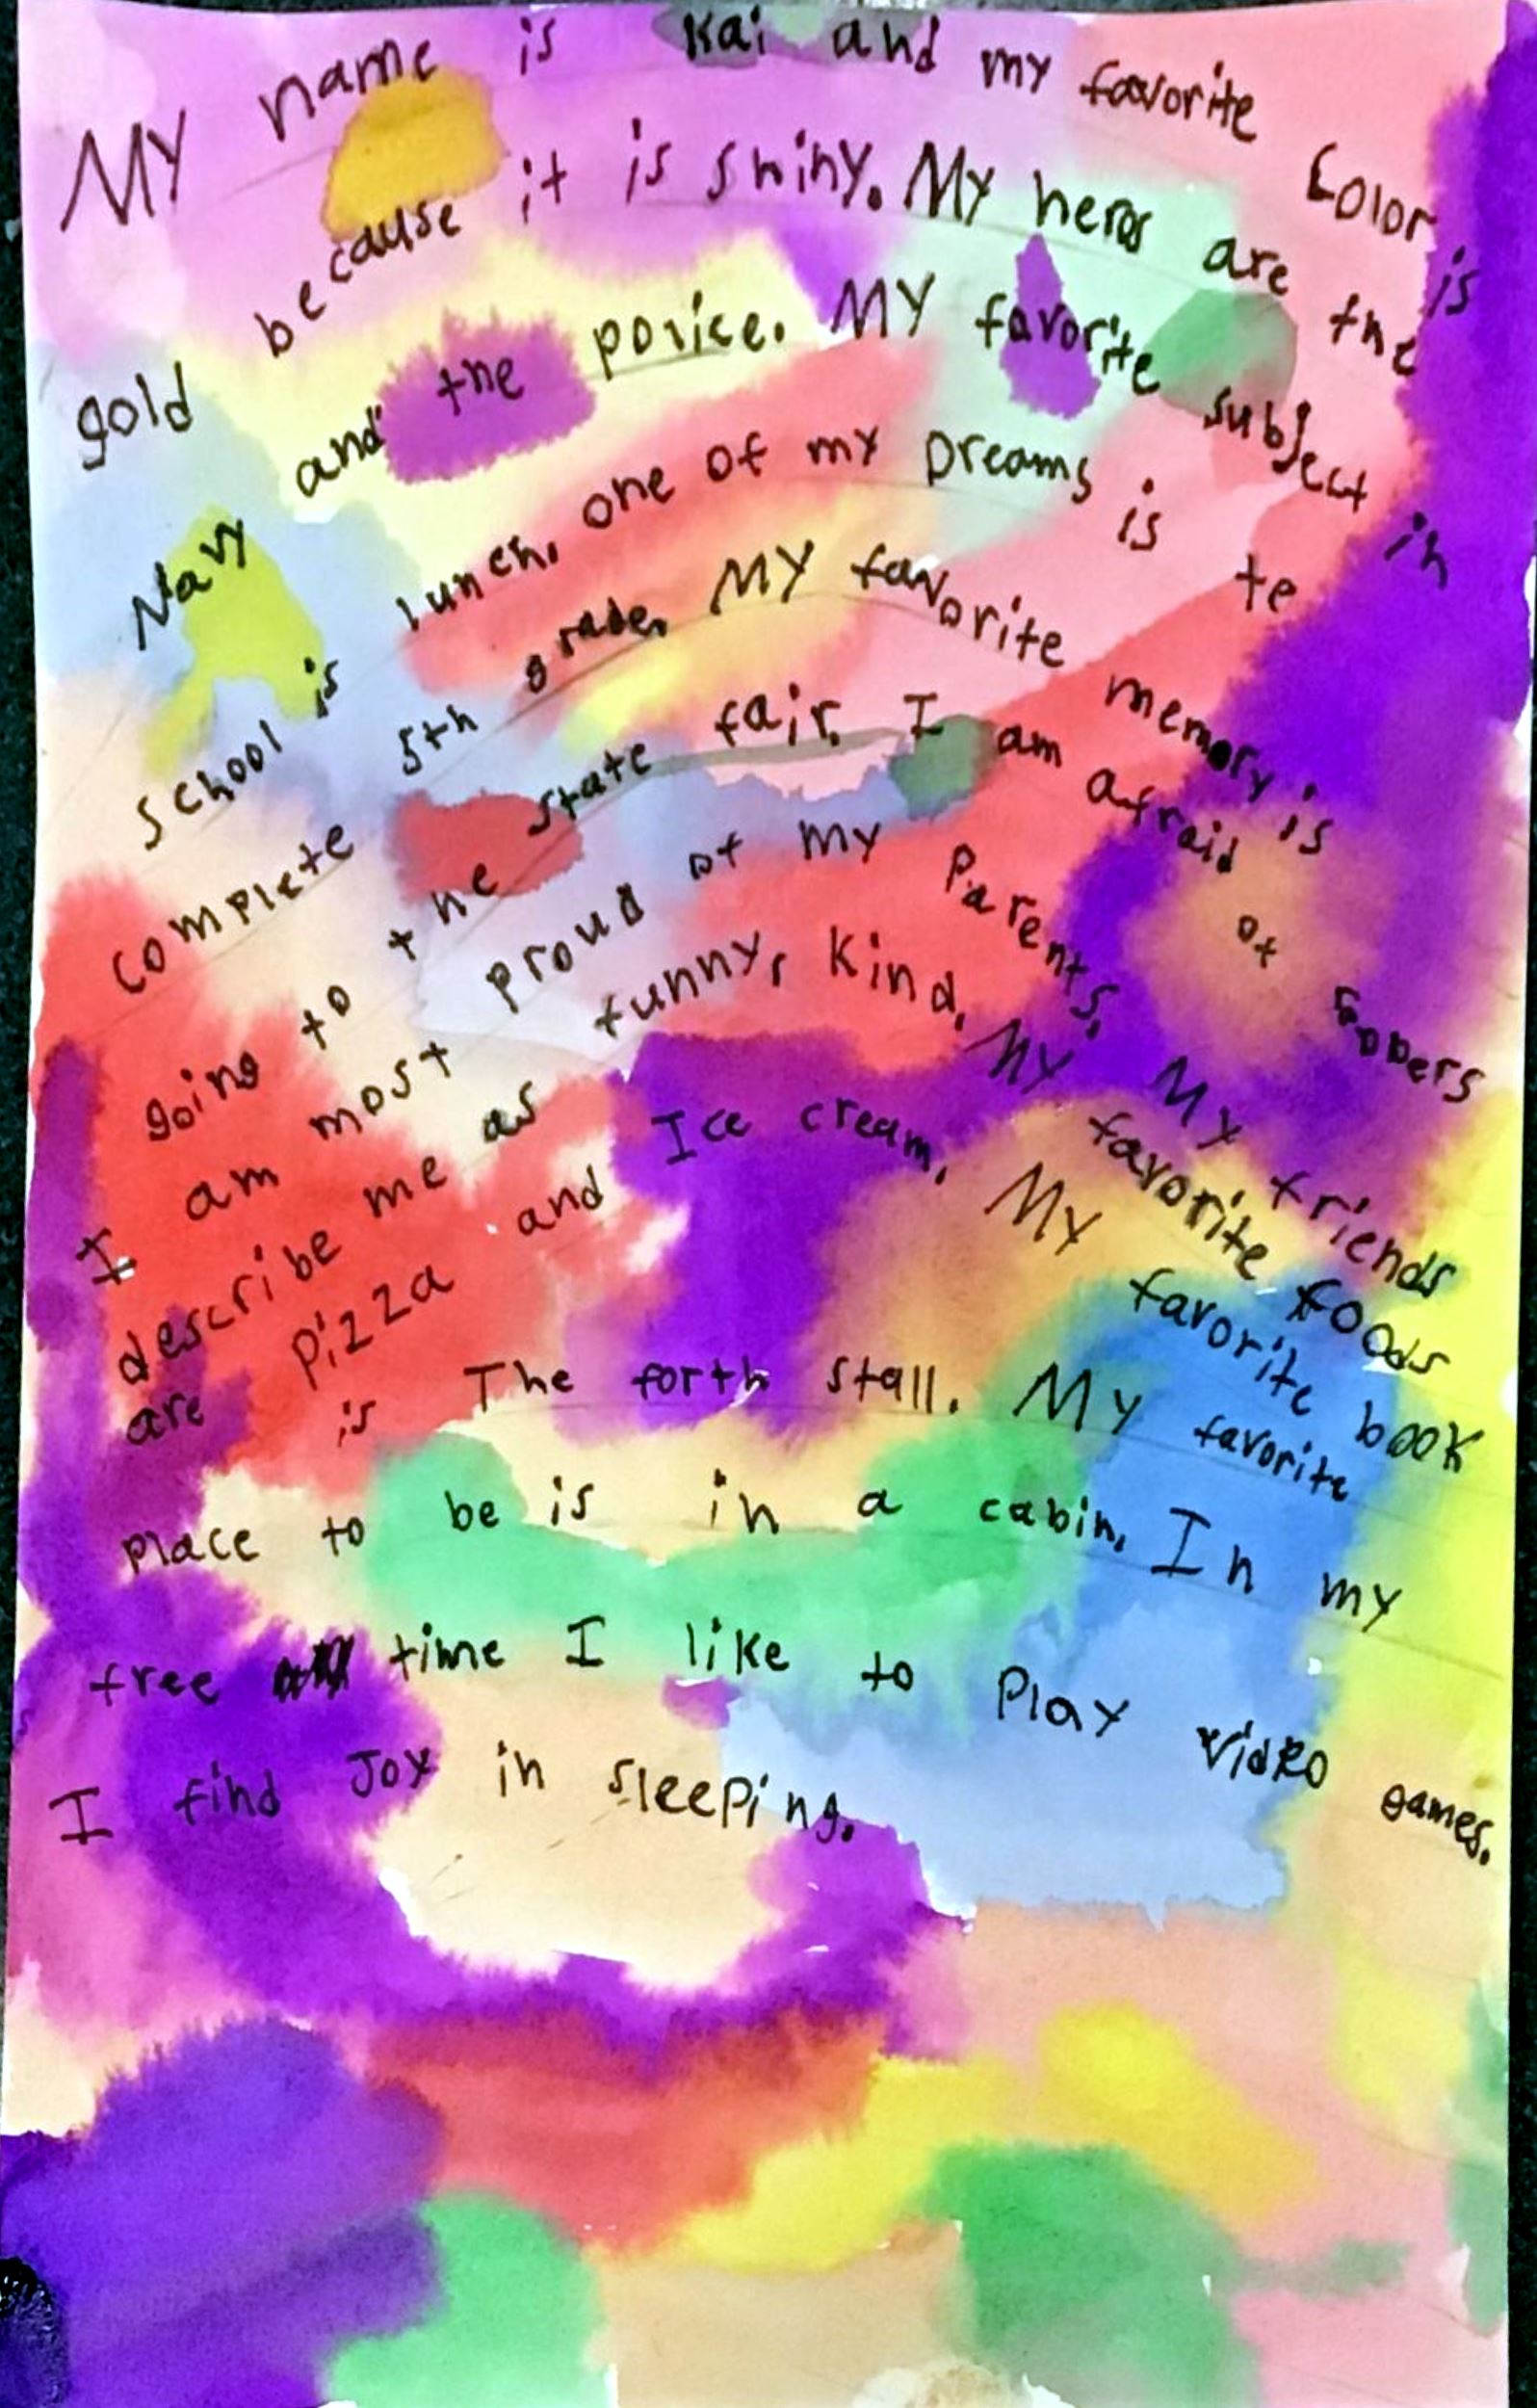 My name is Kai and my favorite Color is
gold because it is shiny. My heros are the
Navy and the police. My favorite subject in
school is lunch. one of my Dreams is te
complete 5th grade. My favorite memory is
going to the state fair. I am afraid of
I am most proud of my Parents. My friends
describe me as funny, kind. My favorite foods
are pizza and Ice cream. My favorite book
is The forth stall. My favorite
place to be is in a cabin. In my
free time I like to Play video games.
I find Joy in sleeping.